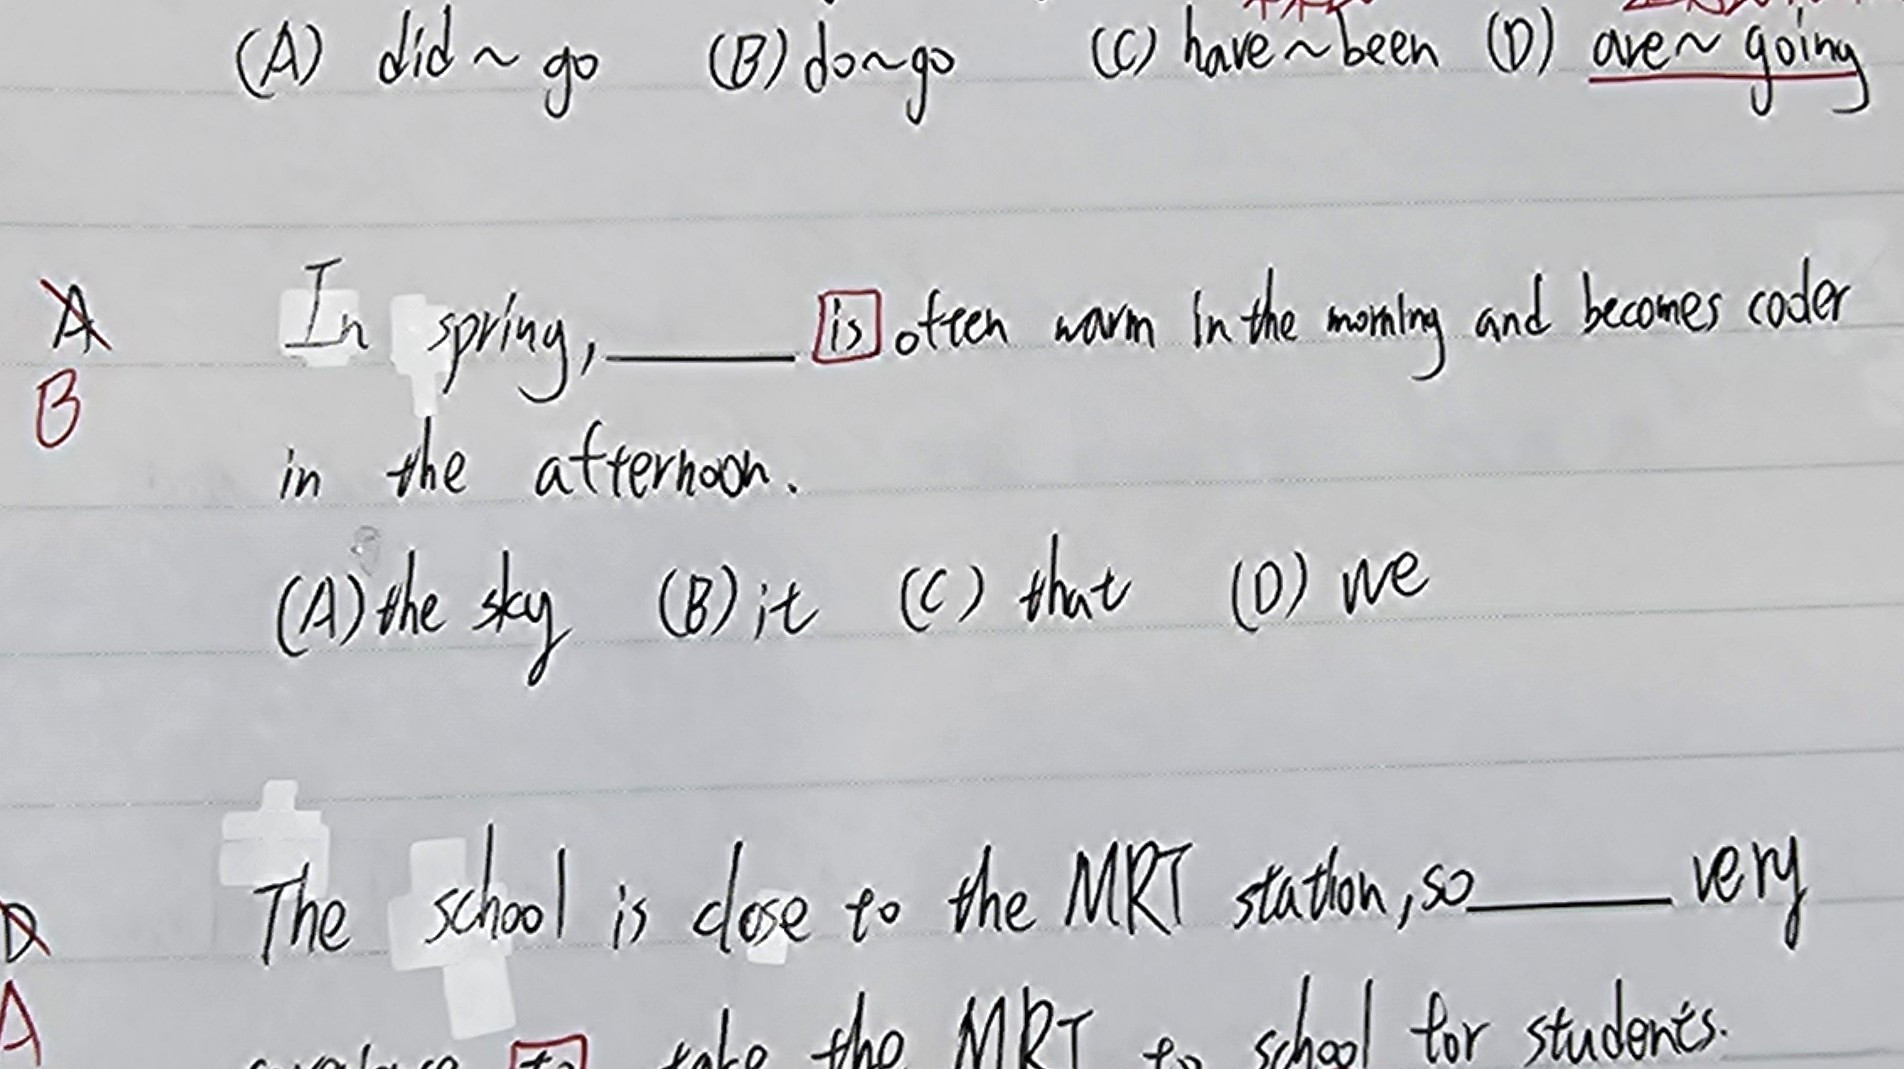 (A) did ~ go (B) do~go (C) have~been (D) are~ going
A In spring, ______ is often warm in the morning and becomes coder
B
in the afternoon.
(A) the sky (B) it (C) that (D) we
D The school is close to the MRT station, so ______ very
A
to take the MRT to school for students.